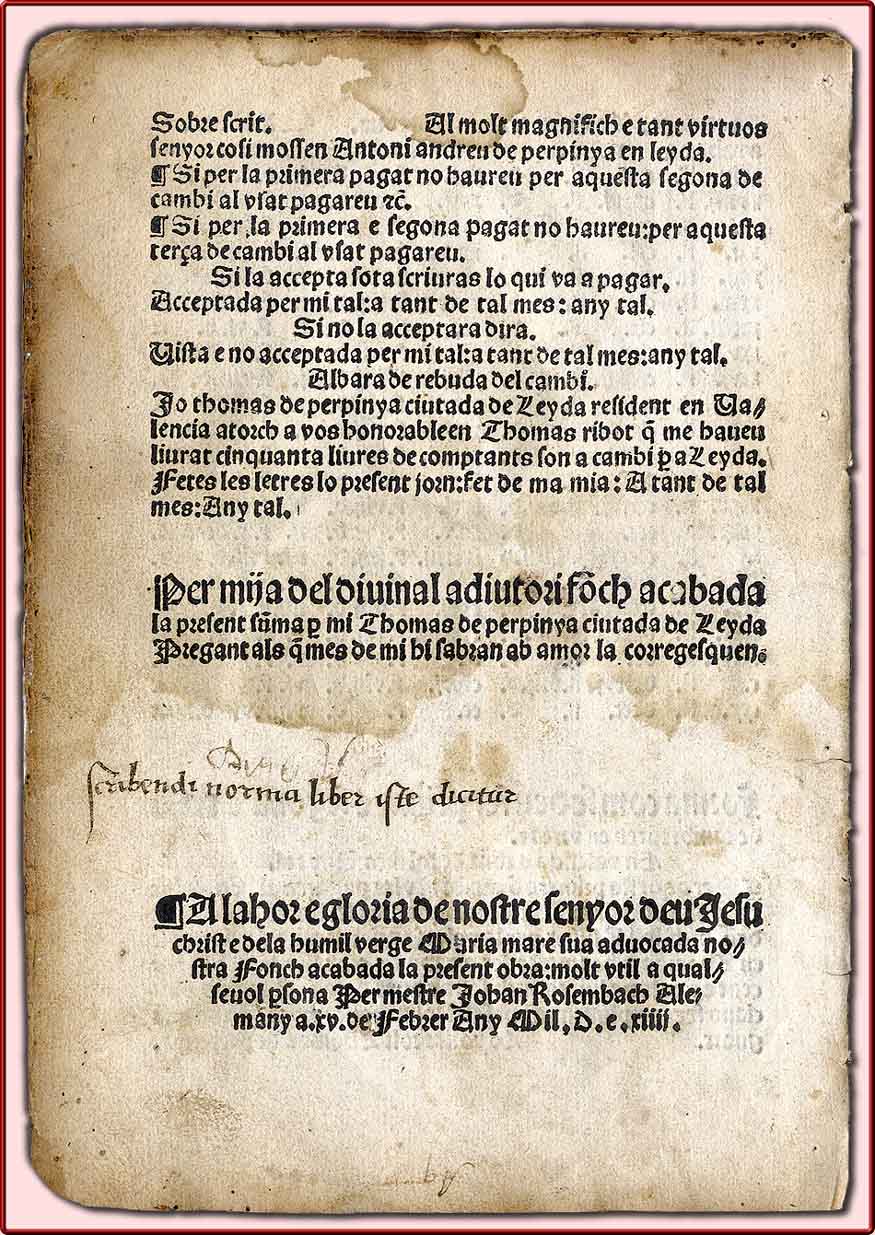 Sobre scrit. Al molt magnifich e tant virtuos
senyor cosi mossen Antoni andreu de perpinya en leyda.
¶ Si per la primera pagat no haureu per aquesta segona de
cambi al vsat pagareu ⁊c̄.
¶ Si per la primera e segona pagat no haureu:per aquesta
terça de cambi al vsat pagareu.
Si la accepta sota scriuras lo qui va a pagar.
Acceptada per mi tal:a tant de tal mes: any tal.
Si no la acceptara dira.
Uista e no acceptada per mi tal:a tant de tal mes:any tal.
Albara de rebuda del cambi.
Jo thomas de perpinya ciutada de Leyda resident en Ua⸗
lencia atorch a vos honorable en Thomas ribot q̄ me haueu
liurat cinquanta liures de comptants son a cambi ꝑa Leyda.
Fetes les letres lo present jorn:fet de ma mia: A tant de tal
mes:Any tal.
Per mija del diuinal adiutori fōch acabada
la present sūma ꝑ mi Thomas de perpinya ciutada de Leyda
Pregant als q̄ mes de mi hi sabran ab amor la corregesquen.
scribendi norma liber iste dicitur
¶ A lahor e gloria de nostre senyor deu Jesu
christ e dela humil verge Maria mare sua aduocada no⸗
stra Fonch acabada la present obra:molt vtil a qual⸗
seuol ꝑsona Per mestre Johan Rosembach Ale⸗
many a.xv.de Febrer Any Mil. D. e. xiiii.